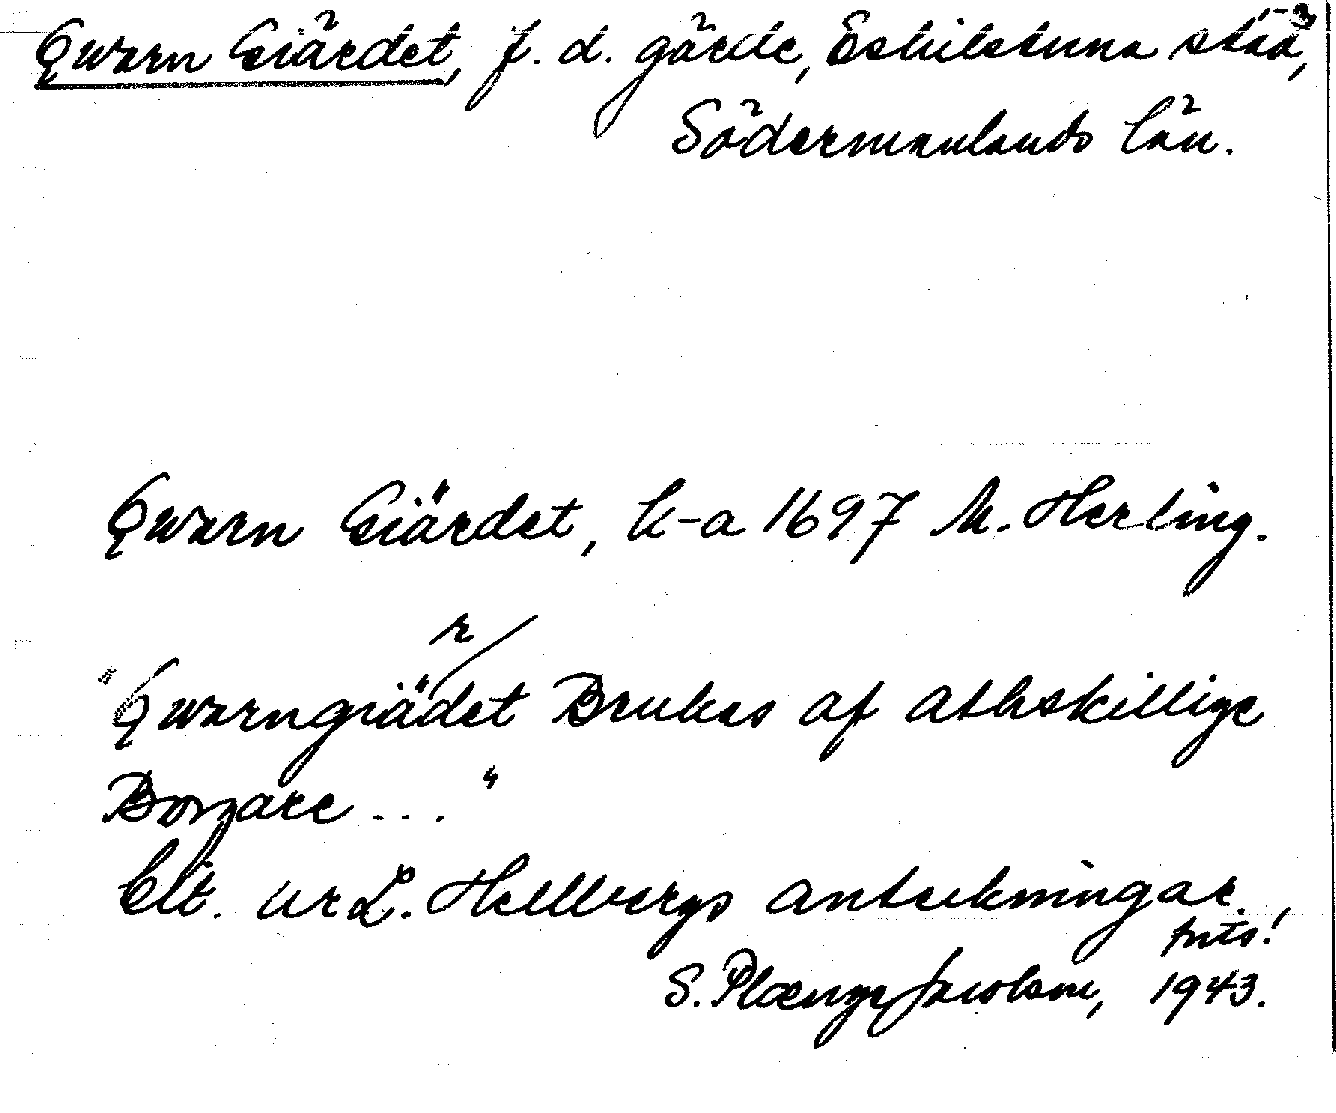 Qwarn Giärdet, f. d. gärde, Eskilstuna stad,
Södermanlands län.
Qwarn Giärdet, k-a 1697 M. Herling.
r
"Qwarngiädet Brukas af athskillige
Borgare ..."
Cit. ur L. Hellbergs anteckningar.
forts!
S. Plænge Jacobson, 1943.